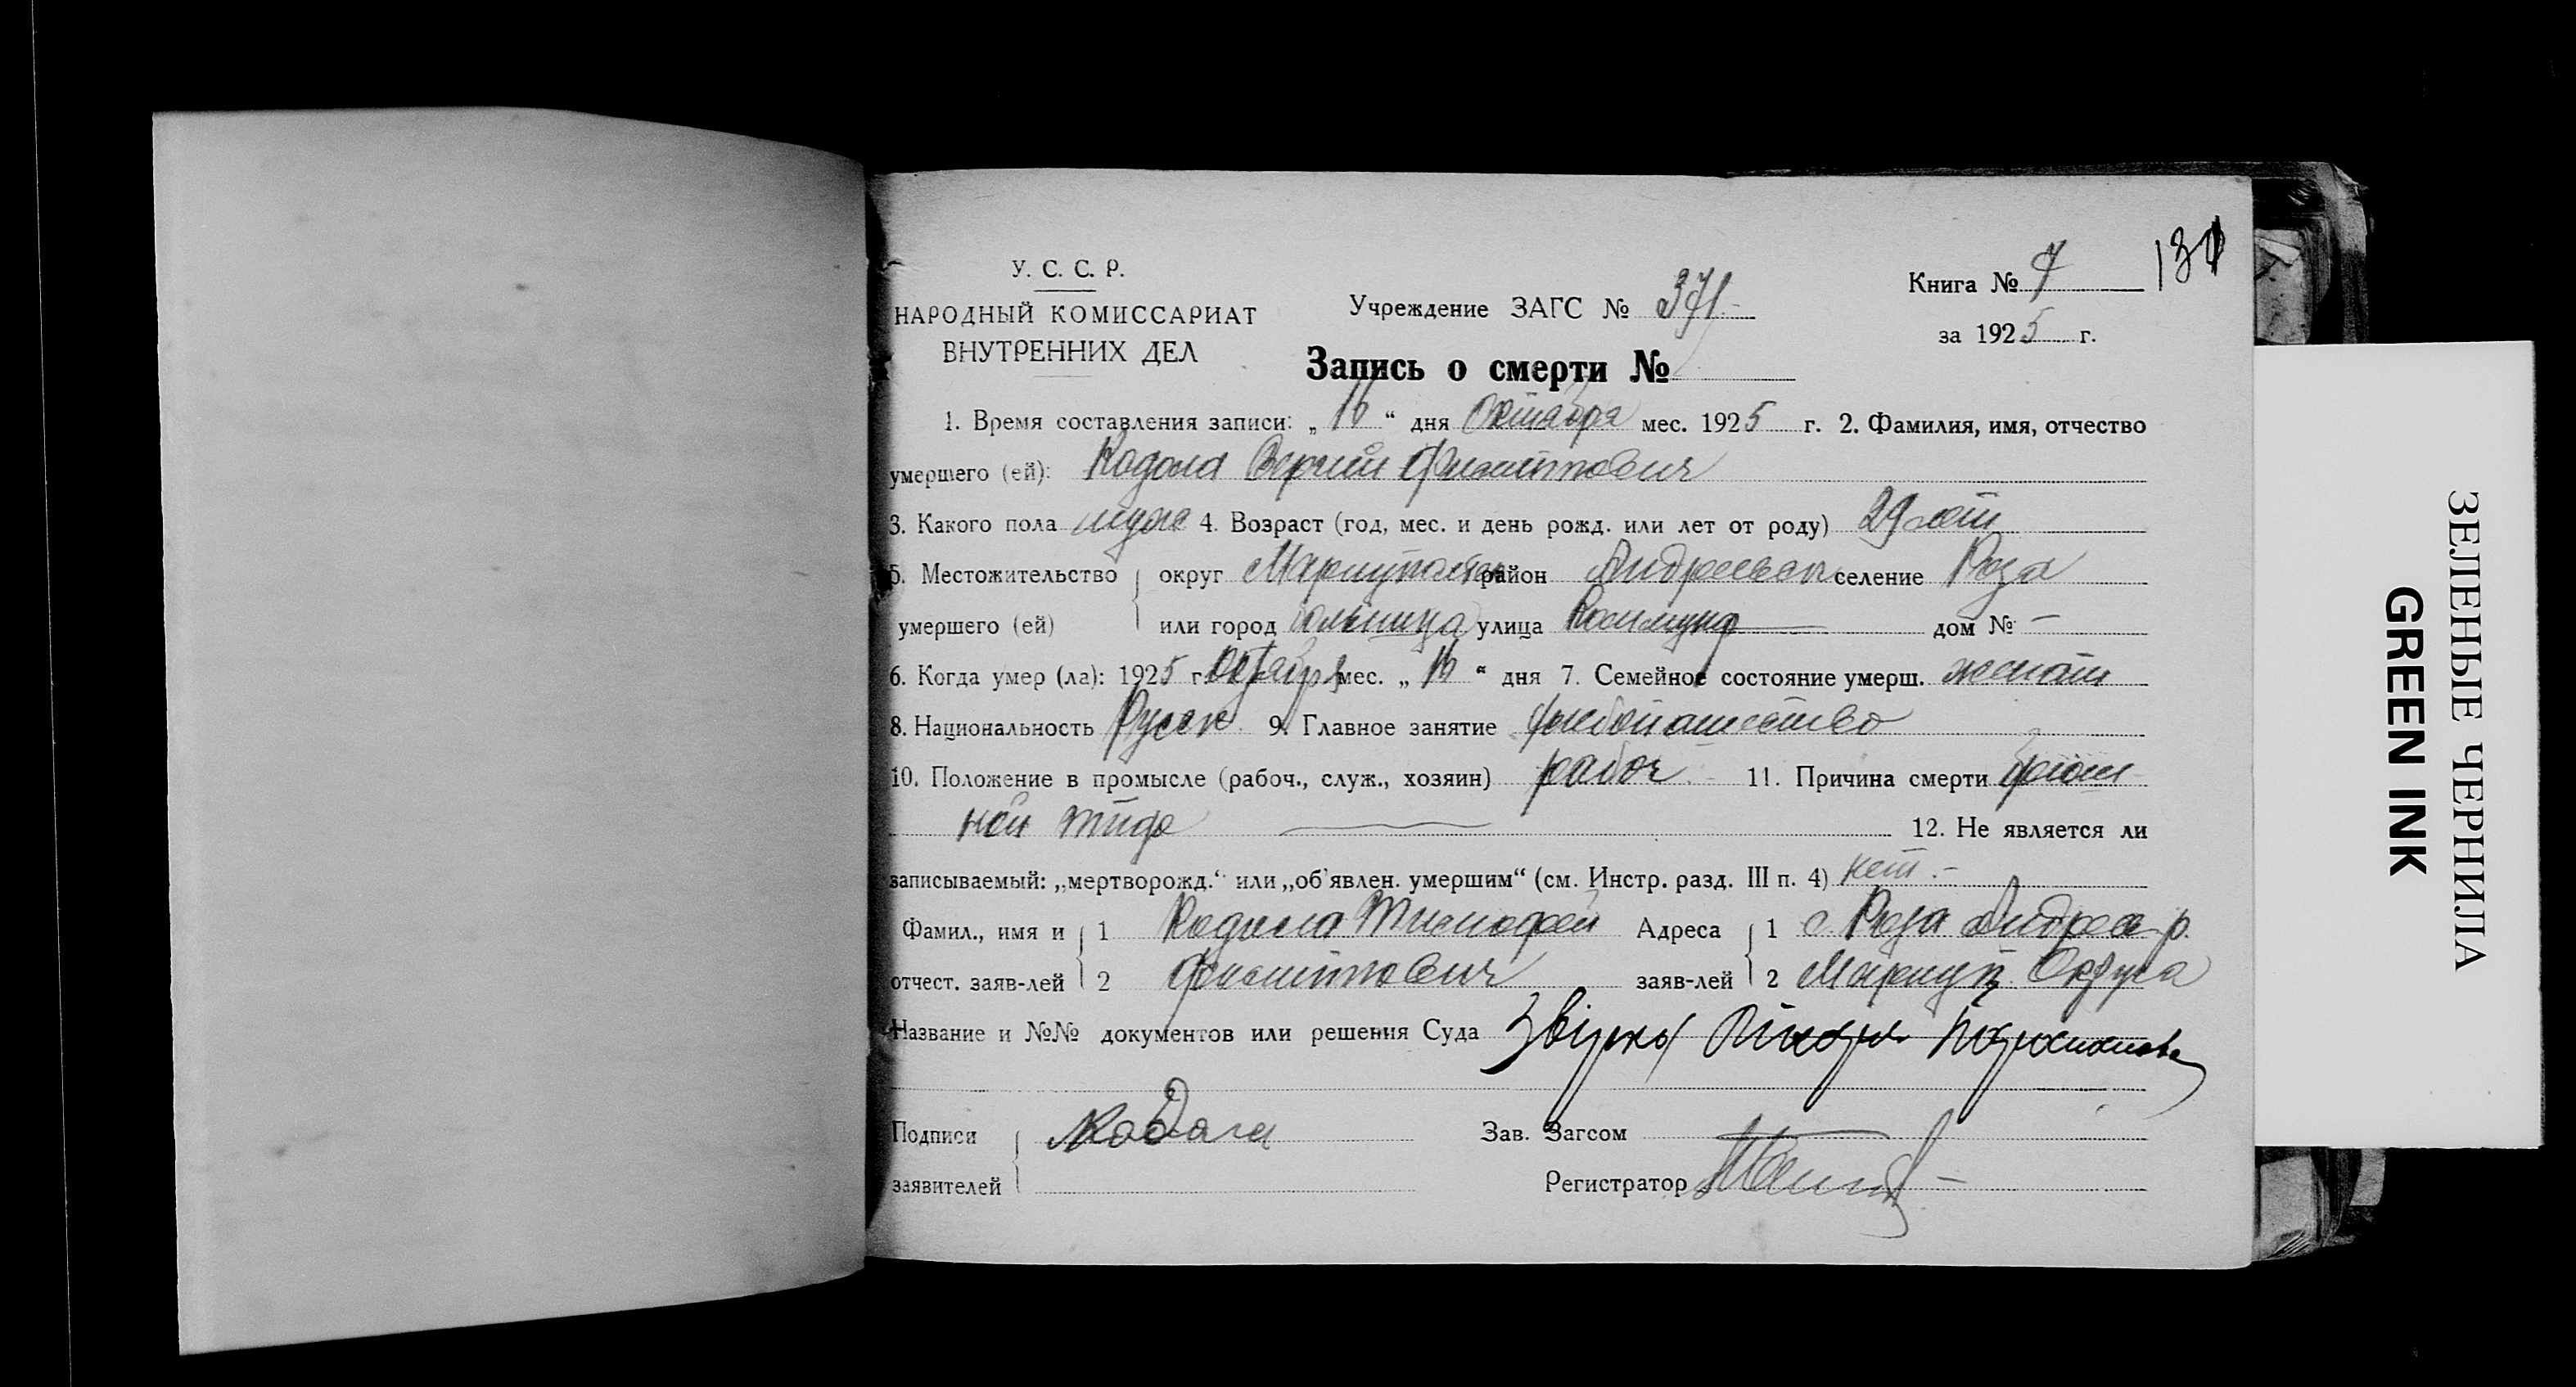 У. С. С. Р.
НАРОДНЫЙ КОМИССАРИАТ
ВНУТРЕННИХ ДЕЛ
Учреждение ЗАГС № 371
Книга № 7
за 1925 г.
Запись о смерти №
1. Время составления записи: „16“ дня Октября мес. 1925 г. 2. Фамилия, имя, отчество
умершего (ей): Кодола
3. Какого пола муж 4. Возраст (год, мес. и день рожд. или лет от роду) 29 лет
5. Местожительство округ район Андреевск селение Роза
умершего (ей) или город больница улица дом № —
6. Когда умер (ла): 1925 г. Октября мес. „16“ дня 7. Семейное состояние умерш. женат
8. Национальность Русск. 9. Главное занятие хлебопашество
10. Положение в промысле (рабоч., служ., хозяин) рабоч. 11. Причина смерти брюш
ной тиф
12. Не является ли
записываемый: „мертворожд.“ или „об'явлен. умершим“ (см. Инстр. разд. III п. 4) нет.-
Фамил., имя и 1 Тимофей Адреса 1 с. Роза Андреев р.
отчест. заяв-лей 2 Филиппович заяв-лей 2 Мариуп. Округа
Название и №№ документов или решения Суда
Подписи Кодола Зав. Загсом
заявителей Регистратор
ЗЕЛЕНЫЕ ЧЕРНИЛА
GREEN INK